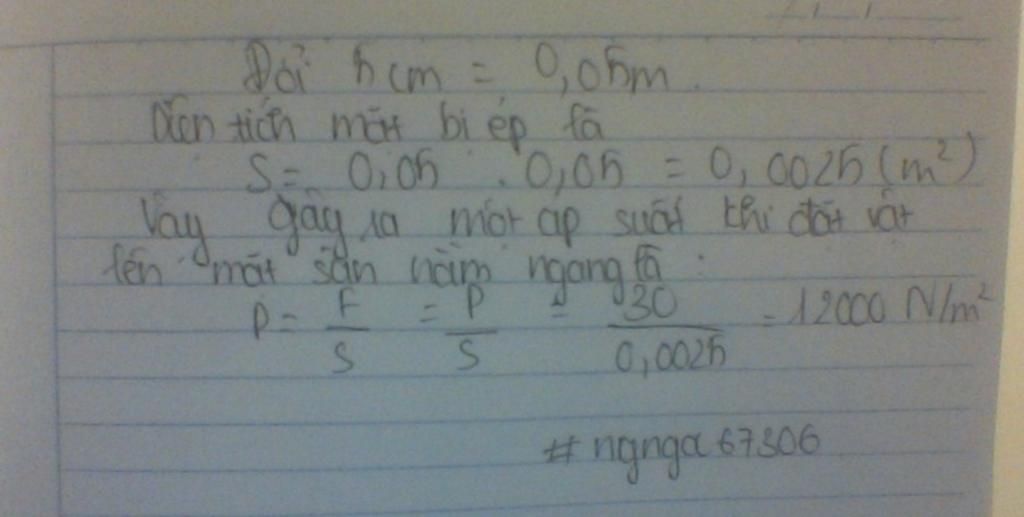 Đổi 5cm = 0,05m.
Diện tích mặt bị ép là
S = 0,05 . 0,05 = 0,0025 (m²)
Vậy gây ra một áp suất khi đặt vật
lên mặt sàn nằm ngang là :
p = F/S = P/S = 30/0,0025 = 12000 N/m²
# ngnga67306